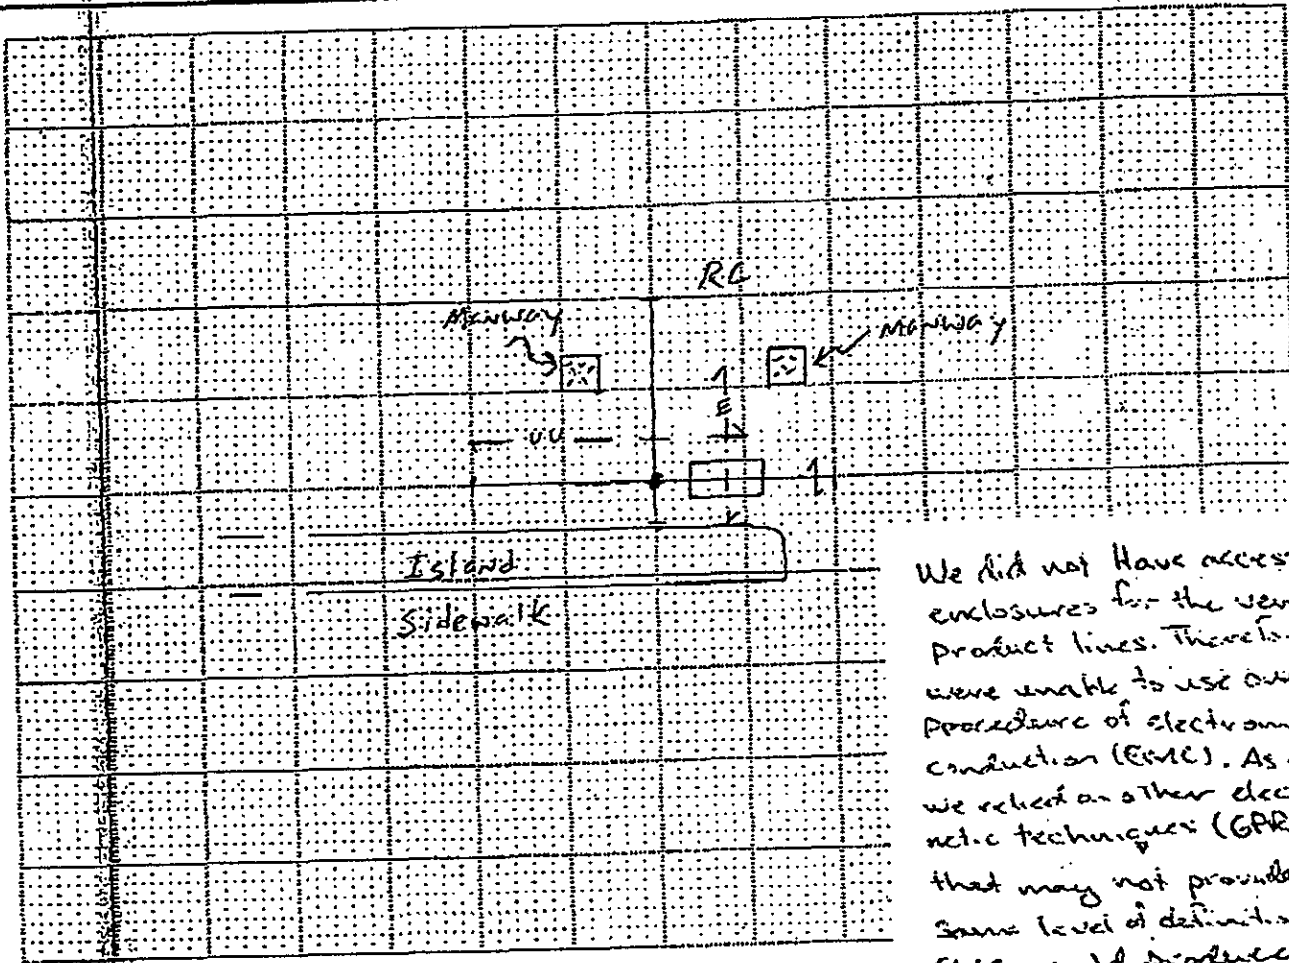 RC
Manway
Manway
E
UU
Island
Sidewalk
We did not Have access
enclosures for the
product lines.
were unable to use
procedure of
conduction (EMC). As
we relied on other
netic techniques (GPR
that may not provide
same level of